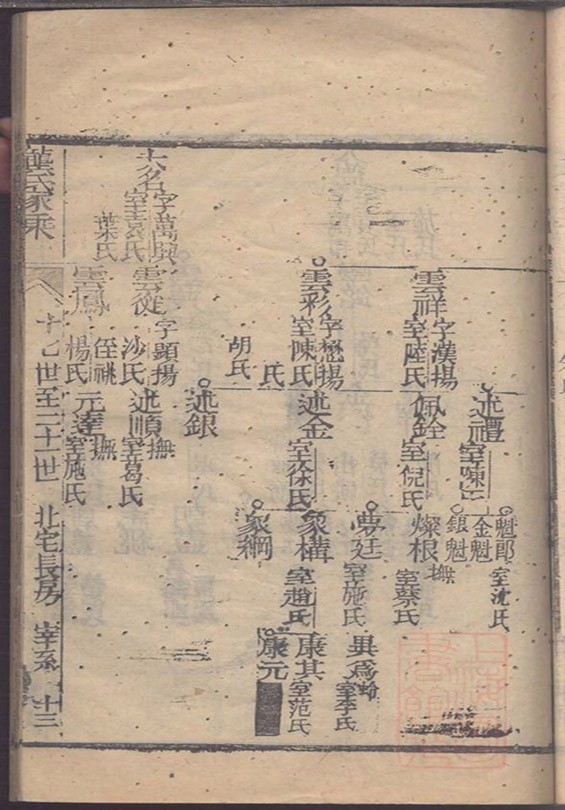 雲祥字漢揚
室陸氏
雲彩字懋揚
室陳氏
氏
胡氏
大名字萬興
室袁氏
葉氏
雲從字顯揚
沙氏
侄祧
雲鳳
楊氏
述禮室陳氏
佩銓
室倪氏
述金
室徐氏
述銀
述順撫
室葛氏
元達撫
室施氏
魁郎室沈氏
金魁
銀魁
燦根撫
室蔡氏
夢廷
室施氏
象構
室趙氏
象綱
異爲蛉
室李氏
康其
室范氏
康元
龔氏家乘
十七世至二十一世
北宅長房
宰系
十三